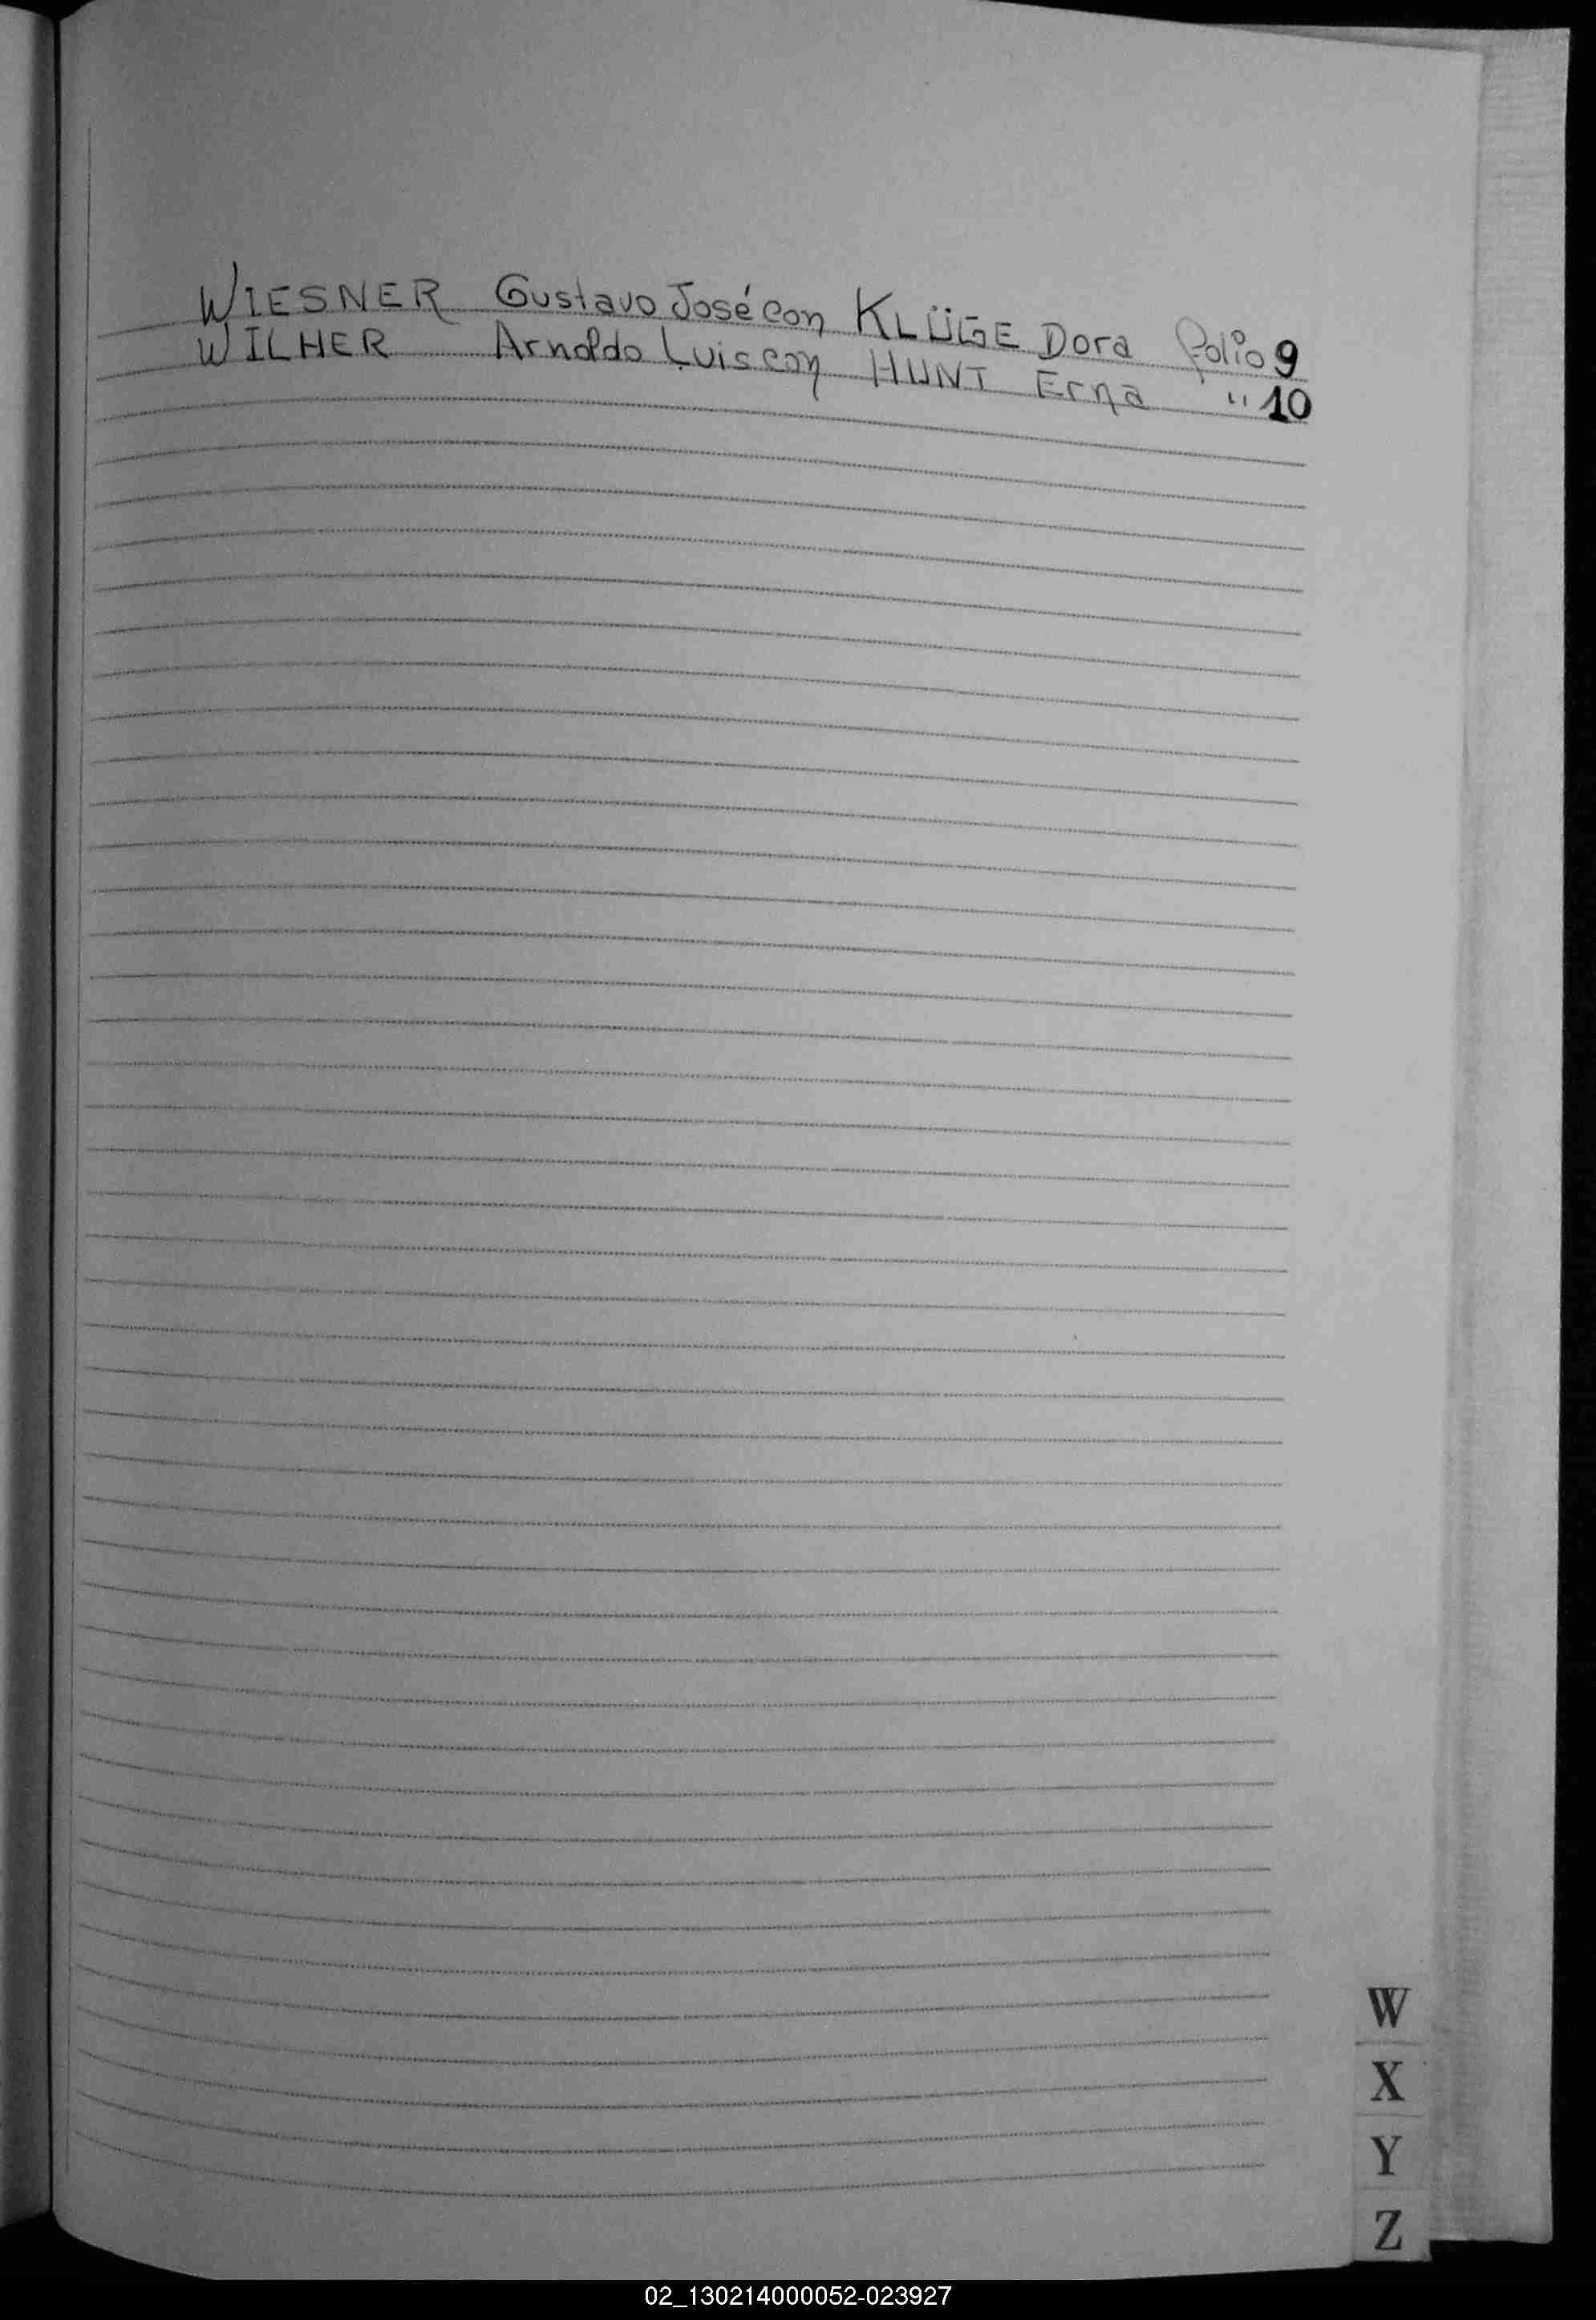 WIESNER Gustavo José con KLÜGE Dora folio 9
WILHER Arnoldo Luis con HUNT Erna " 10
W
X
Y
Z
02_130214000052-023927